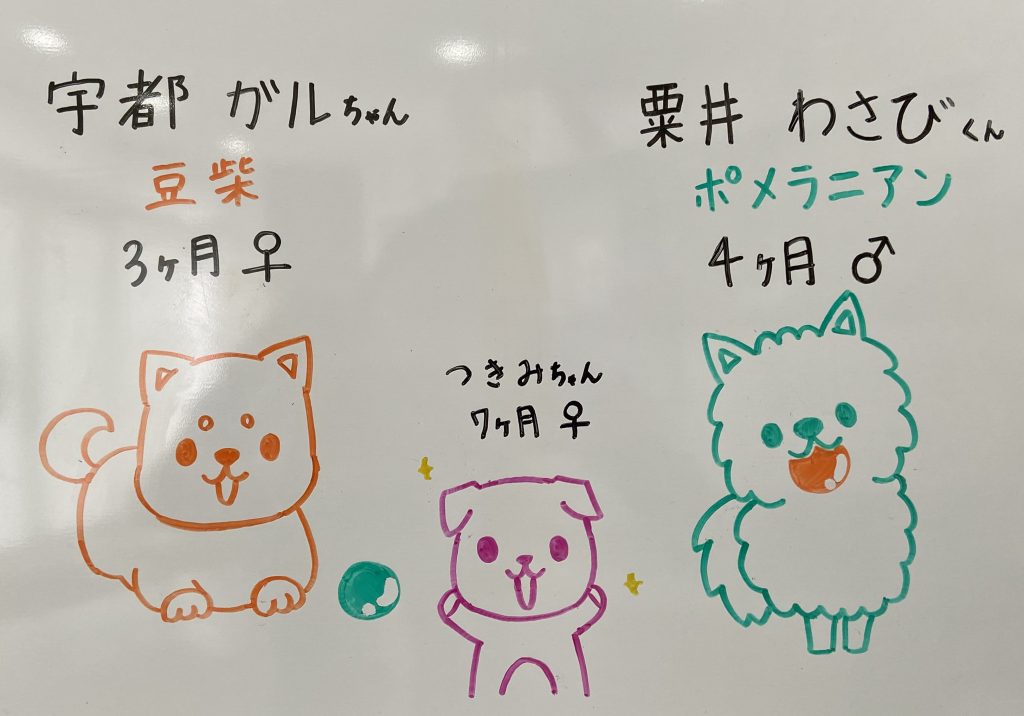 宇都 ガルちゃん
豆柴
3ヶ月 ♀
粟井 わさびくん
ポメラニアン
4ヶ月 ♂
つきみちゃん
7ヶ月 ♀